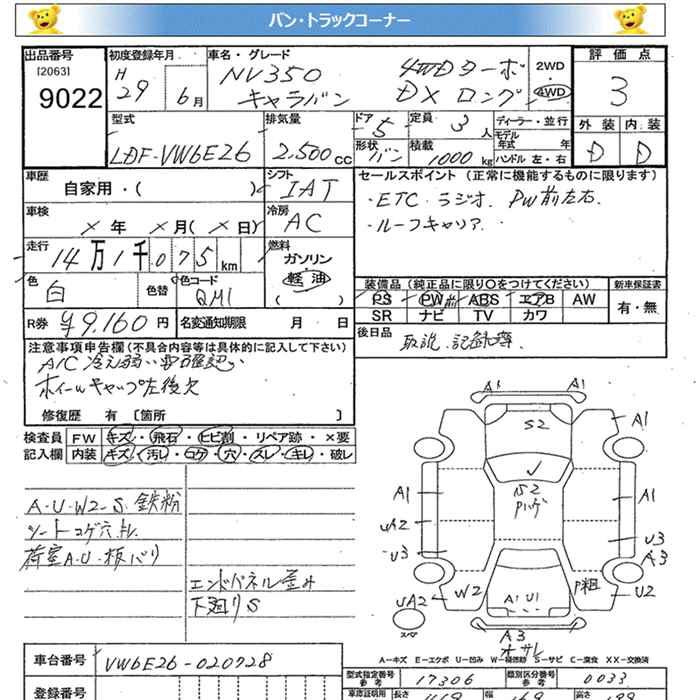 バン・トラックコーナー
出品番号
[2063]
9022
初度登録年月
H29 6月
車名・グレード
NV350
キャラバン
4WDターボ
DX ロング
2WD
・
4WD
評価点
3
外装 内装
D D
型式
LDF-VW6E26
排気量
2.500cc
ドア
5
定員
3人
形状
バン
積載
1000kg
ディーラー・並行
モデル年式 年式
ハンドル 左・右
車歴
自家用・( )
シフト
IAT
車検
×年 ×月(×日)
冷房
AC
走行
14万1千075km
燃料
ガソリン
軽油
( )
色
白
色替
色コード
QM1
セールスポイント(正常に機能するものに限ります)
・ETC ラジオ. PW前左右
・ルーフキャリア.
装備品(純正品に限り○をつけてください)
PS PW前 ABS エアB AW
SR ナビ TV カワ
新車保証書
有・無
R券 ¥9,160円
名変通知期限 月 日
後日品
取説.記録簿
注意事項申告欄(不具合内容等は具体的に記入して下さい)
A/C冷え弱い要確認
ホイールキャップ左後欠
修復歴 有 〔箇所 〕
検査員
記入欄
FW キズ・飛石・ヒビ割・リペア跡・×要
内装 キズ・汚し・コゲ・穴・スレ・キレ・破レ
A・U・W2-S 鉄粉
シートコゲ穴
荷室A.U.板バリ
エンドパネル歪み
下廻りS
A1 A1
S2
A1 A1
A1 A1
S2
Pハゲ
UA2
U3 U3
A3
W2 A1 U1 P粗 U2
UA2
スペア
A3
オサレ
A-キズ E-エクボ U-凹み W-補修跡 S-サビ C-腐食 XX-交換済
車台番号
VW6E26-020928
登録番号
型式指定番号
参考
17306
類別区分番号
参考
0033
車庫証明用
長さ 幅 高さ